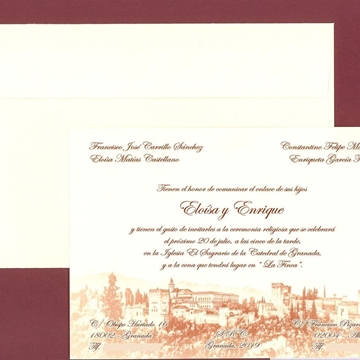 Francisco José Carrillo Sánchez
Eloísa Matías Castellano
Constantino Felipe
Enriqueta García
Tienen el honor de comunicar el enlace de sus hijos
Eloísa y Enrique
y tienen el gusto de invitarles a la ceremonia religiosa que se celebrará
el próximo 20 de julio, a las cinco de la tarde,
en la Iglesia "El Sagrario de la Catedral de Granada,
y a la cena que tendrá lugar en " La Finca".
C/ Obispo Hurtado 10
18002- Granada
Tlf.
S.R.C.
Granada, 2019
C/ Francisco
02004 -
Tlf.